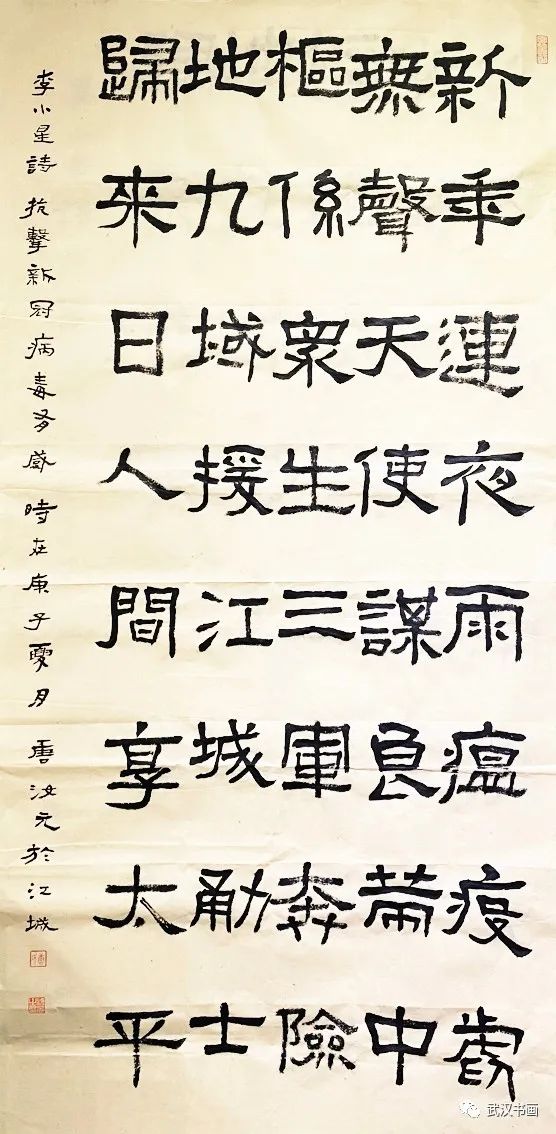 新年連夜雨瘟疫虐
無聲天使謀良策中
樞係眾生三軍奔險
地九域援江城勇士
歸來日人間享太平
李小星詩 抗擊新冠病毒有感 時在庚子夏月 唐汝元於江城
武汉书画